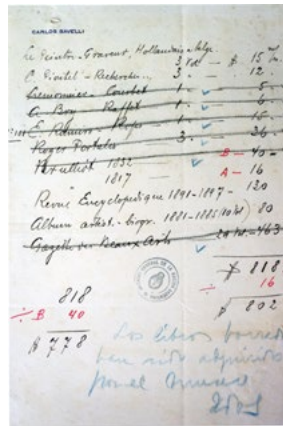 CARLOS RAVELLI
Le Peintre-Graveur, Hollandais & Belge 3 Vol. — $ 15 m/n
C. Dontet - Recherches... 3. — 12.
Lemonnier - Courbet 1 - 5
A. Bry Raffet - 1 - 6
E. Ramiro - Rops - 1 - 15.
Roger Portalis 3. 26.
1832 B - 40
1817 — A - 16
Revue Encyclopédique 1891-1897 - 120
Album artist. - biogr. 1881-1885 (10 vol) 80
Gazette des Beaux Arts 463
$ 818
÷ 16
$ 802
818
÷ B 40
$ 778
Los libros borrados
han sido adquiridos
por el Museo